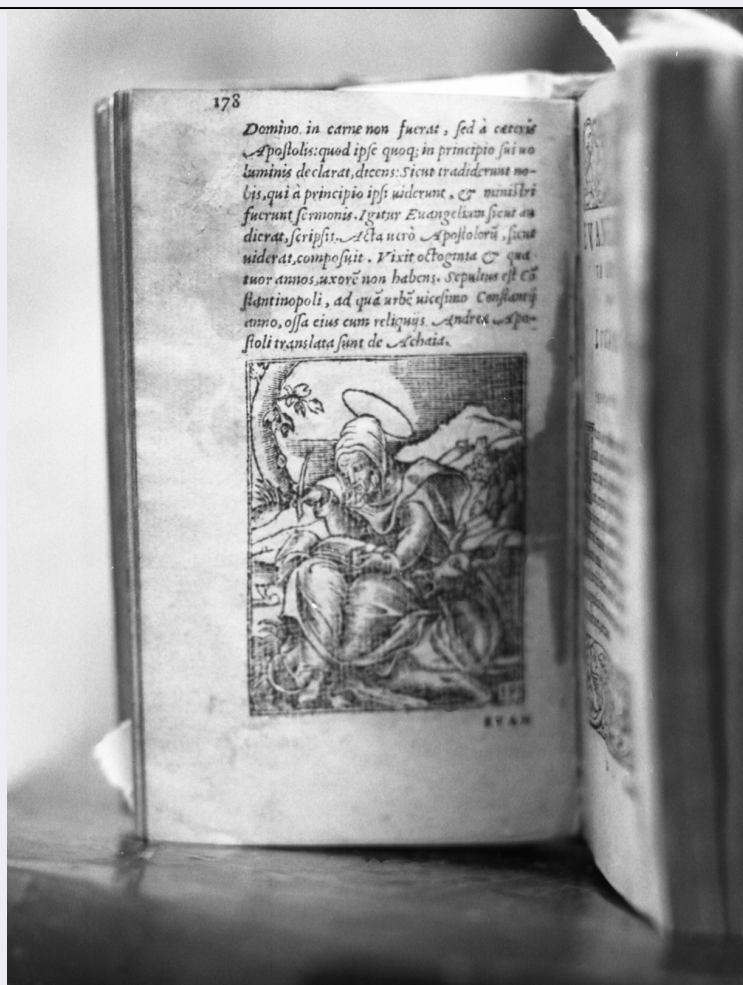 178
Domino. in carne non fuerat, sed à cæteris
Apostolis: quod ipse quoq; in principio sui uo
luminis declarat, dicens: Sicut tradiderunt no-
bis, qui à principio ipsi uiderunt, & ministri
fuerunt sermonis. Igitur Euangelium sicut au
dierat, scripsit. Acta uerò Apostolorũ, sicut
uiderat, composuit. Vixit octoginta & qua
tuor annos, uxorẽ non habens. Sepultus est Cõ
stantinopoli, ad quã urbẽ uicesimo Constantij
anno, ossa eius cum reliquijs Andreæ Apo-
stoli translata sunt de Achaia.
EVAN